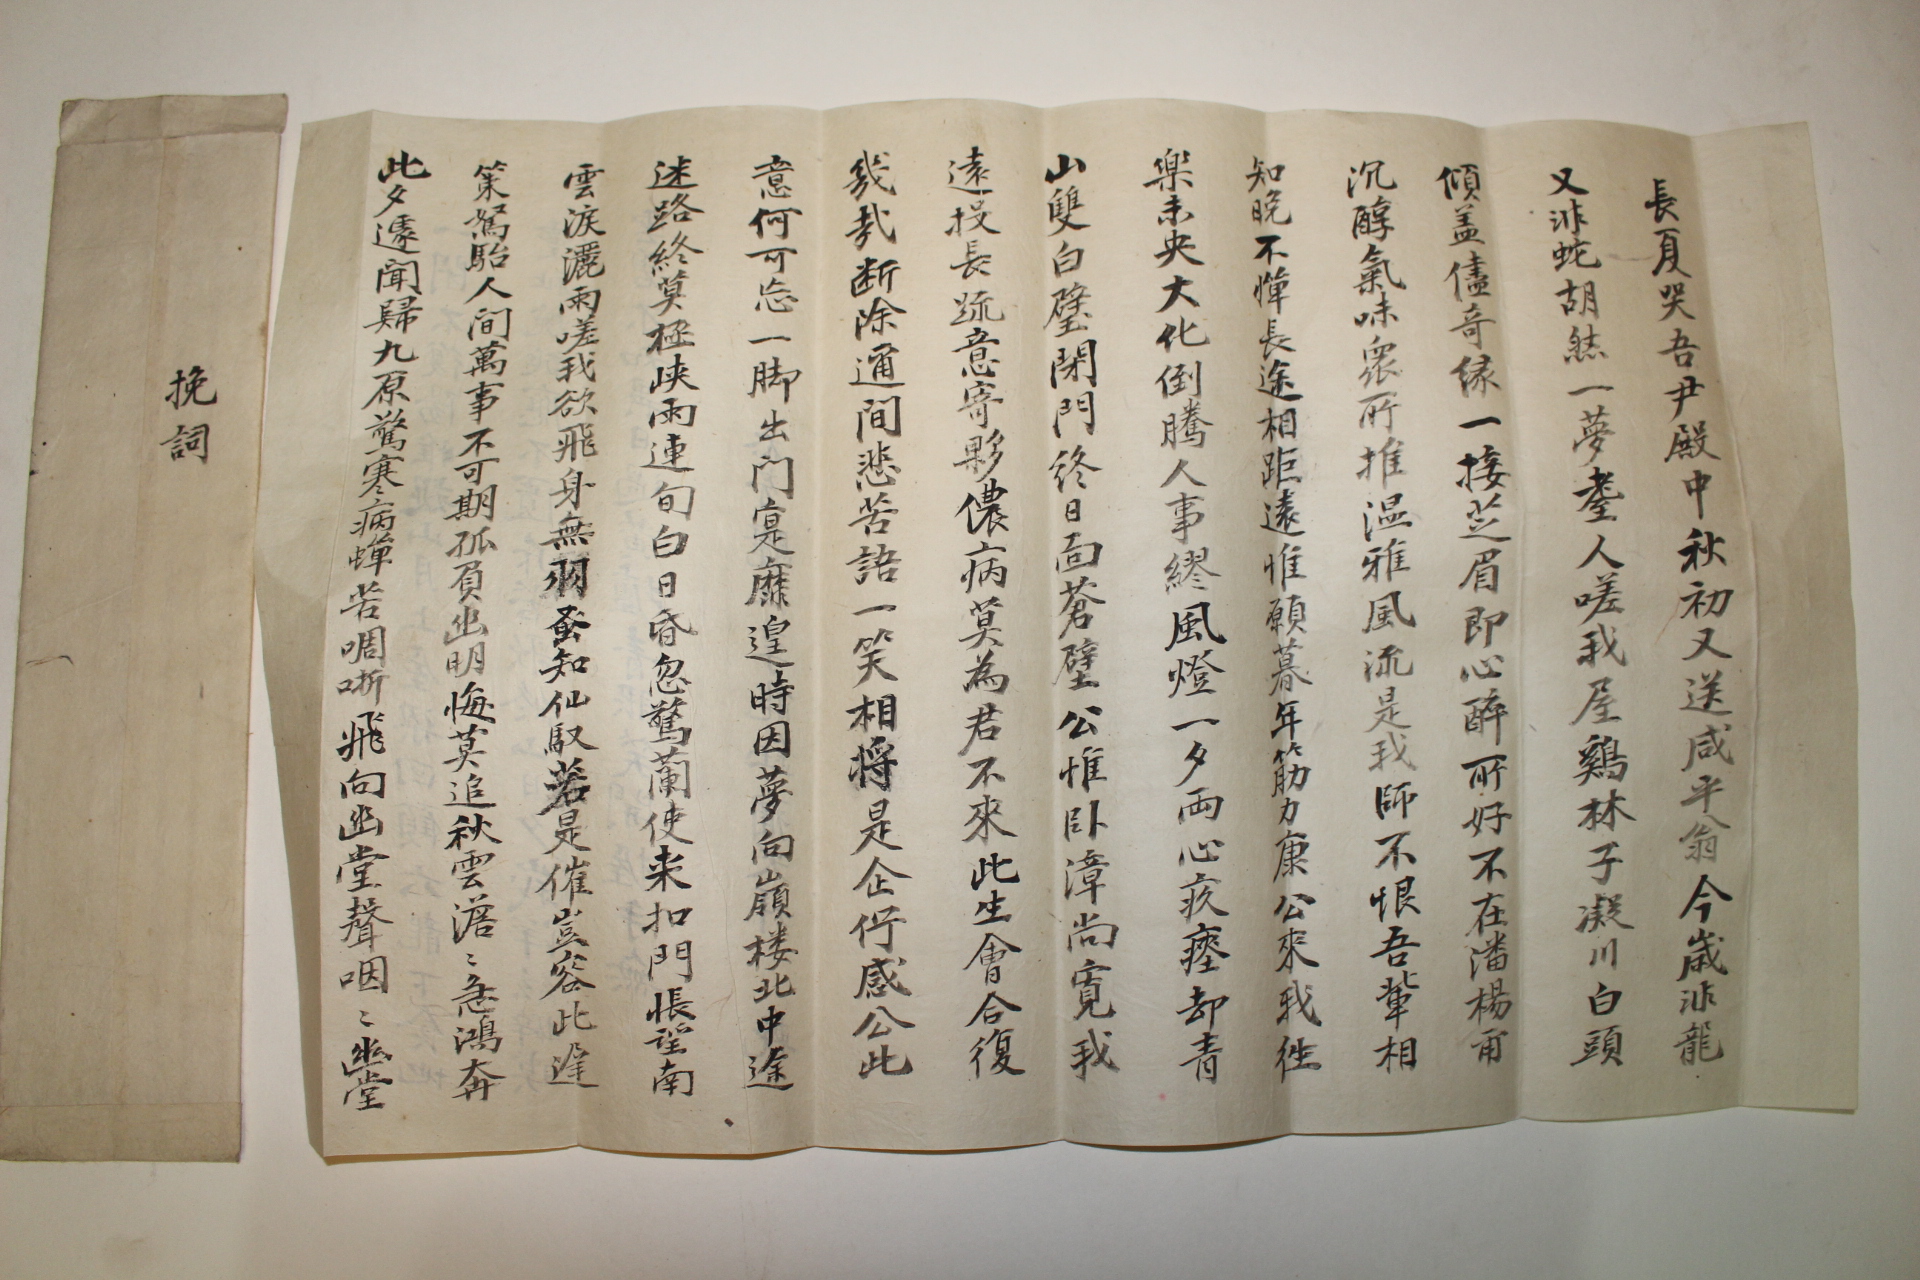 長夏哭吾尹殿中秋初又送咸平翁今歲非龍
又非蛇胡然一夢耋人嗟我屋鷄林子凝川白頭
傾盖儘奇緣一接芝眉即心醉所好不在潘楊甫
沉醇氣味衆所推温雅風流是我師不恨吾輩相
知晚不憚長途相距遠惟願暮年筋力康公來我徃
樂未央大化倒騰人事繆風燈一夕両心疚瘞却青
山雙白璧閉門終日面蒼壁公惟卧漳尚寛我
遠投長疏意寄夥儂病莫為君不來此生會合復
幾哉断除通間悲苦語一笑相将是企佇感公此
意何可忘一脚出門寔靡遑時因夢向嶺楼北中途
迷路終莫極峽雨連旬白日昏忽驚蘭使来扣門悵望南
雲淚灑雨嗟我欲飛身無羽蚤知仙馭若是催豈容此逢
策駑駘人间萬事不可期孤負幽明悔莫追秋雲澹〻急鴻奔
此夕遽聞歸九原驚寒病蟬苦啁哳飛向幽堂聲咽〻幽堂
挽詞